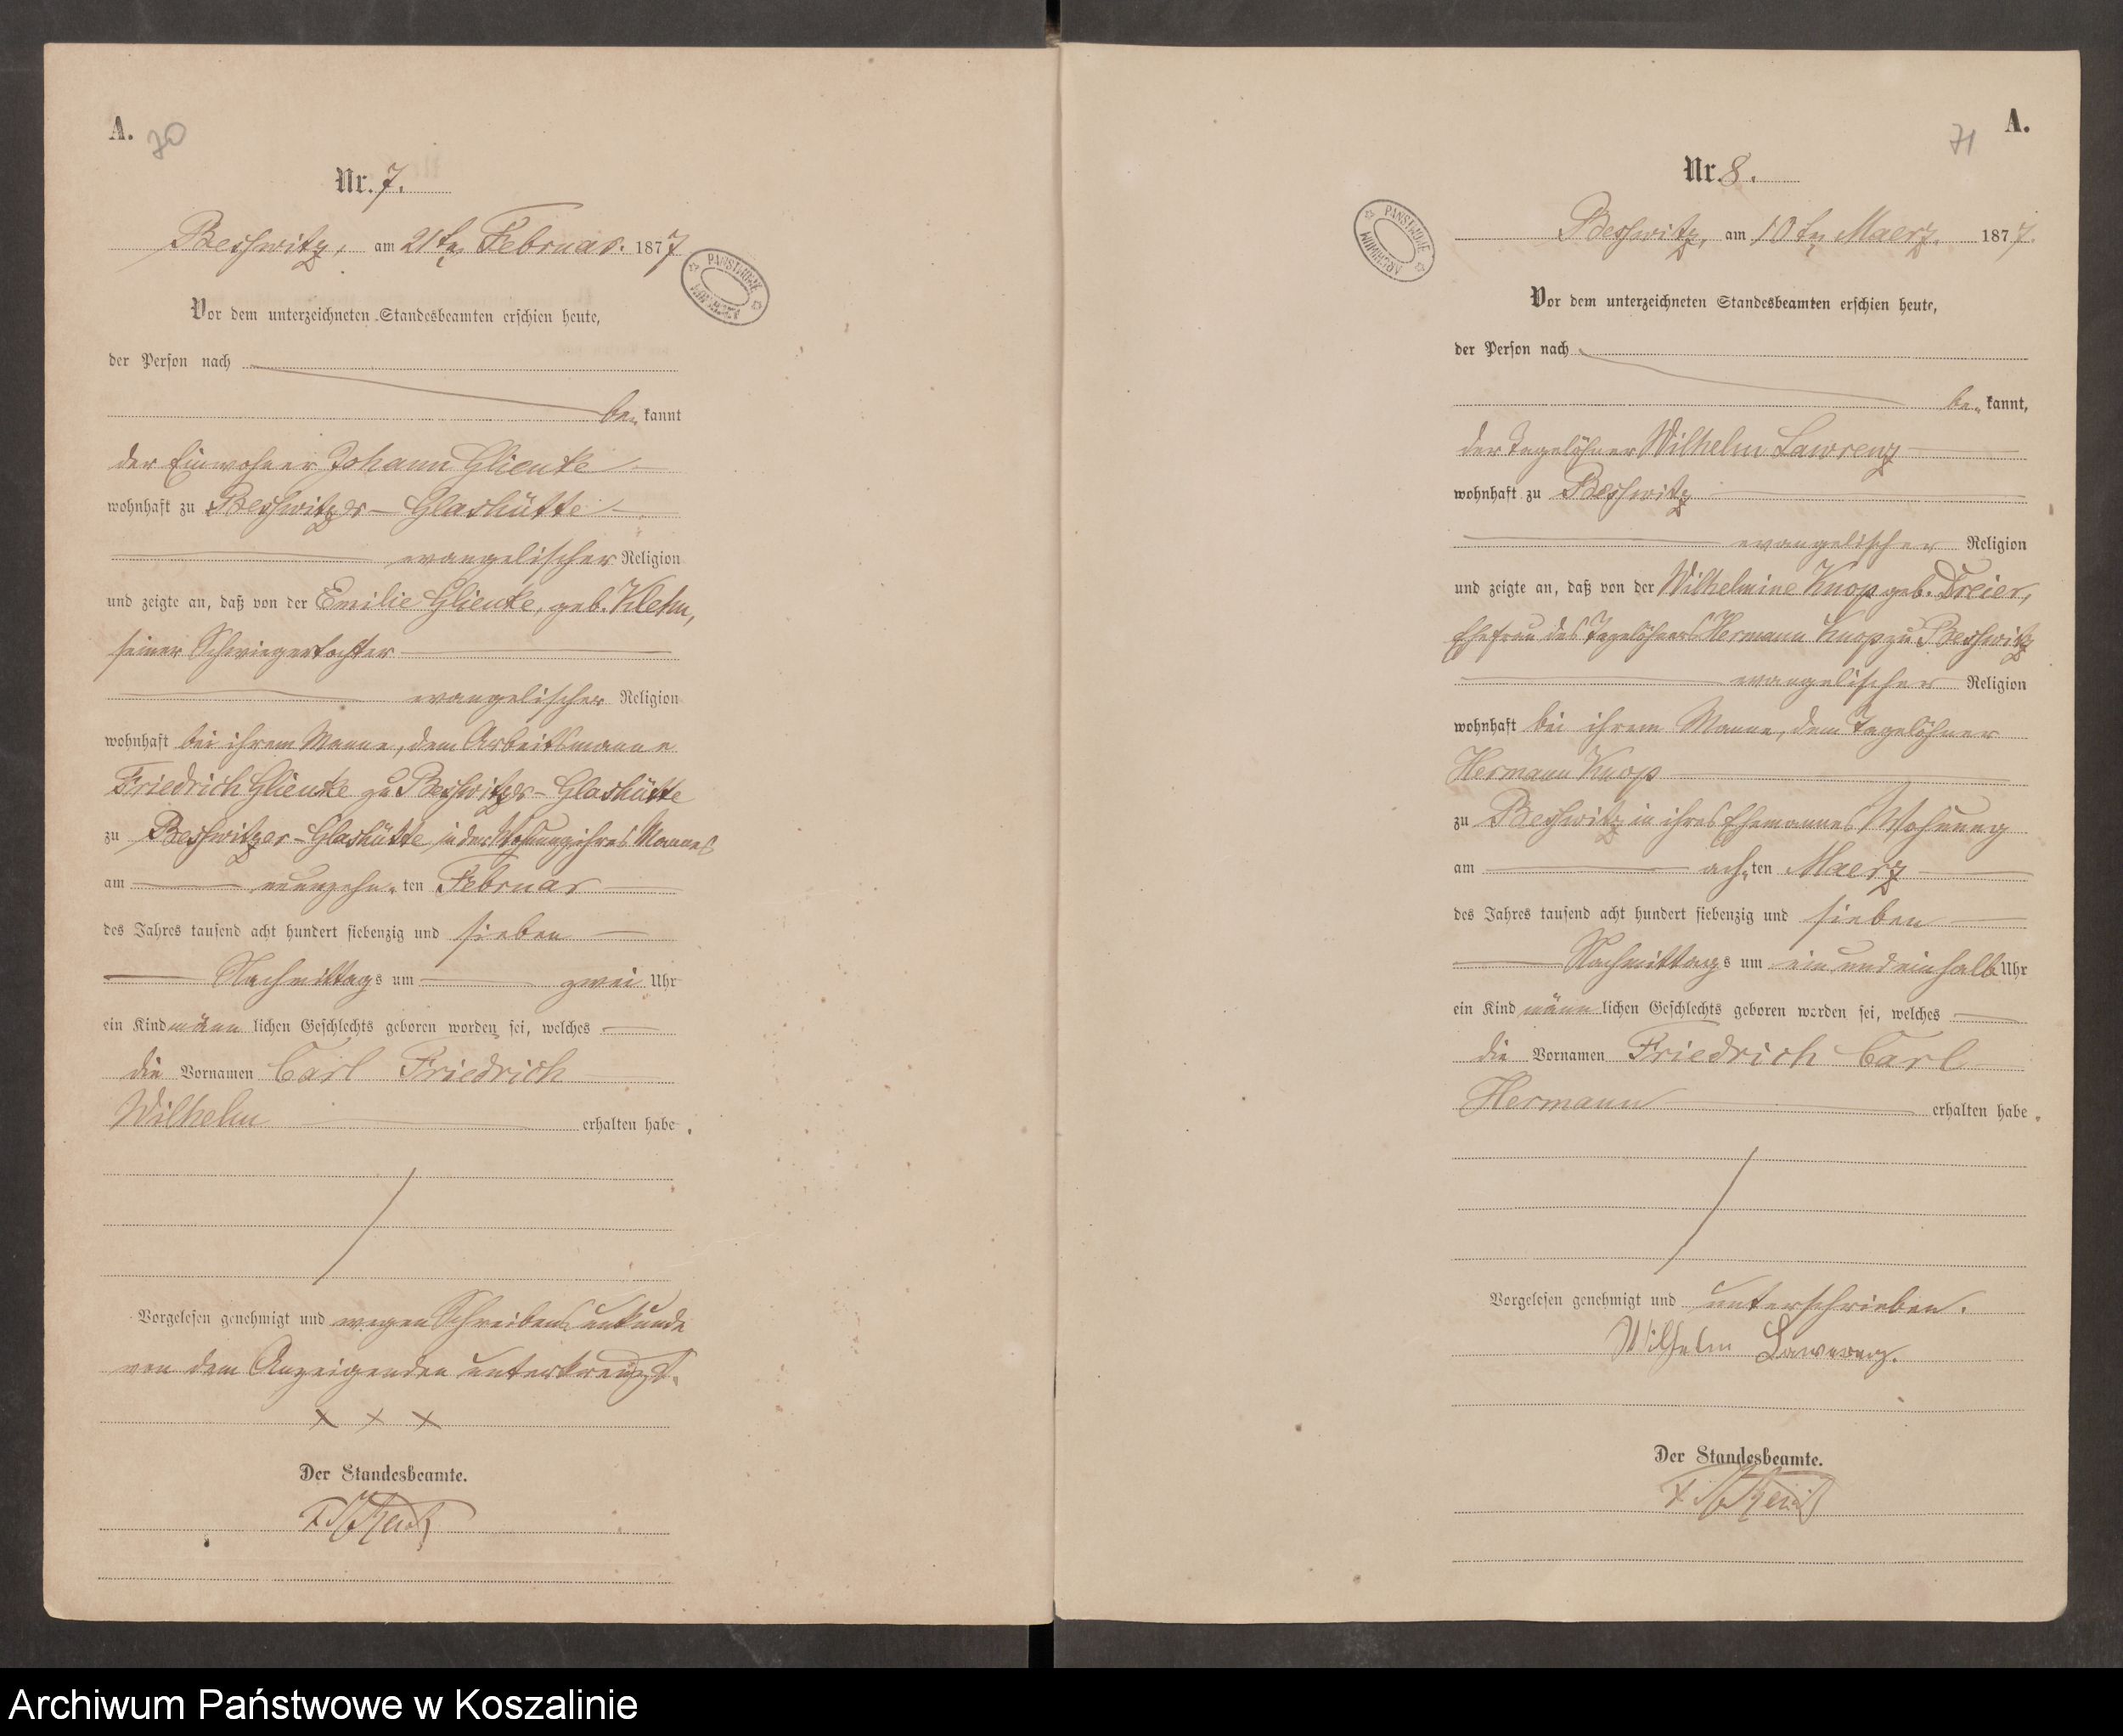 A. 70
Nr. 7.
Beßwitz, am 21ten Februar. 1877
PAŃSTWOWE ARCHIWUM
Vor dem unterzeichneten Standesbeamten erschien heute,
der Person nach
be„ kannt
der Einwohner Johann Glienke
wohnhaft zu Beßwitzer-Glashütte
evangelischer Religion
und zeigte an, daß von der Emilie Glienke, geb. Klehn,
seiner Schwiegertochter
evangelischer Religion
wohnhaft bei ihrem Manne, dem Arbeitsmanne
Friedrich Glienke zu Beßwitzer-Glashütte
zu Beßwitzer-Glashütte in der Wohnung ihres Mannes
am neunzehn„ten Februar
des Jahres tausend acht hundert siebenzig und sieben
Nachmittags um zwei Uhr
ein Kind männ lichen Geschlechts geboren worden sei, welches
die Vornamen Carl Friedrich
Wilhelm erhalten habe.
Vorgelesen genehmigt und wegen Schreibensunkunde
von dem Anzeigenden unterkreuzt.
x x x
Der Standesbeamte.
71 A.
Nr. 8.
Beßwitz, am 10ten Maerz. 1877.
PAŃSTWOWE ARCHIWUM
Vor dem unterzeichneten Standesbeamten erschien heute,
der Person nach
be„ kannt,
der Tagelöhner Wilhelm Lawrenz
wohnhaft zu Beßwitz
evangelischer Religion
und zeigte an, daß von der Wilhelmine Knop geb. Dreier,
Ehefrau des Tagelöhners Hermann Knop zu Beßwitz
evangelischer Religion
wohnhaft bei ihrem Manne, dem Tagelöhner
Hermann Knop
zu Beßwitz in ihres Ehemannes Wohnung
am ach„ten Maerz
des Jahres tausend acht hundert siebenzig und sieben
Nachmittags um ein und ein halb Uhr
ein Kind männ lichen Geschlechts geboren worden sei, welches
die Vornamen Friedrich Carl
Hermann erhalten habe.
Vorgelesen genehmigt und unterschrieben.
Wilhelm Lawrenz.
Der Standesbeamte.
Archiwum Państwowe w Koszalinie